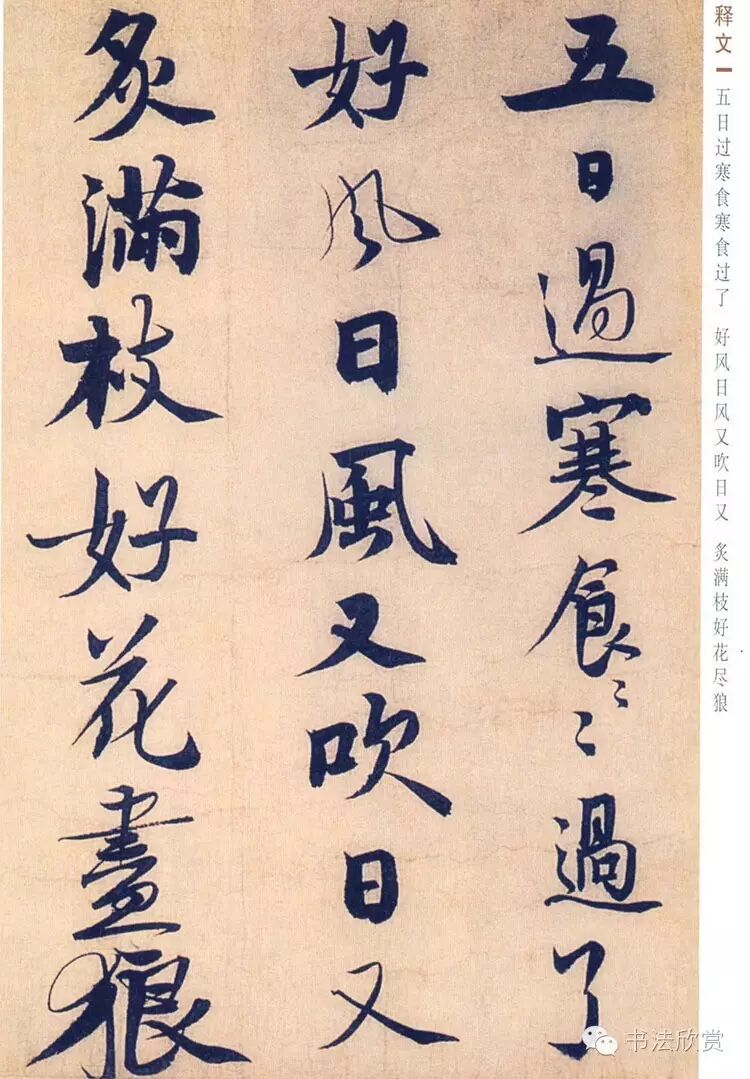 释文 五日过寒食寒食过了 好风日风又吹日又 炙满枝好花尽狼
五日過寒食〻〻過了
好風日風又吹日又
炙滿枝好花盡狼
书法欣赏